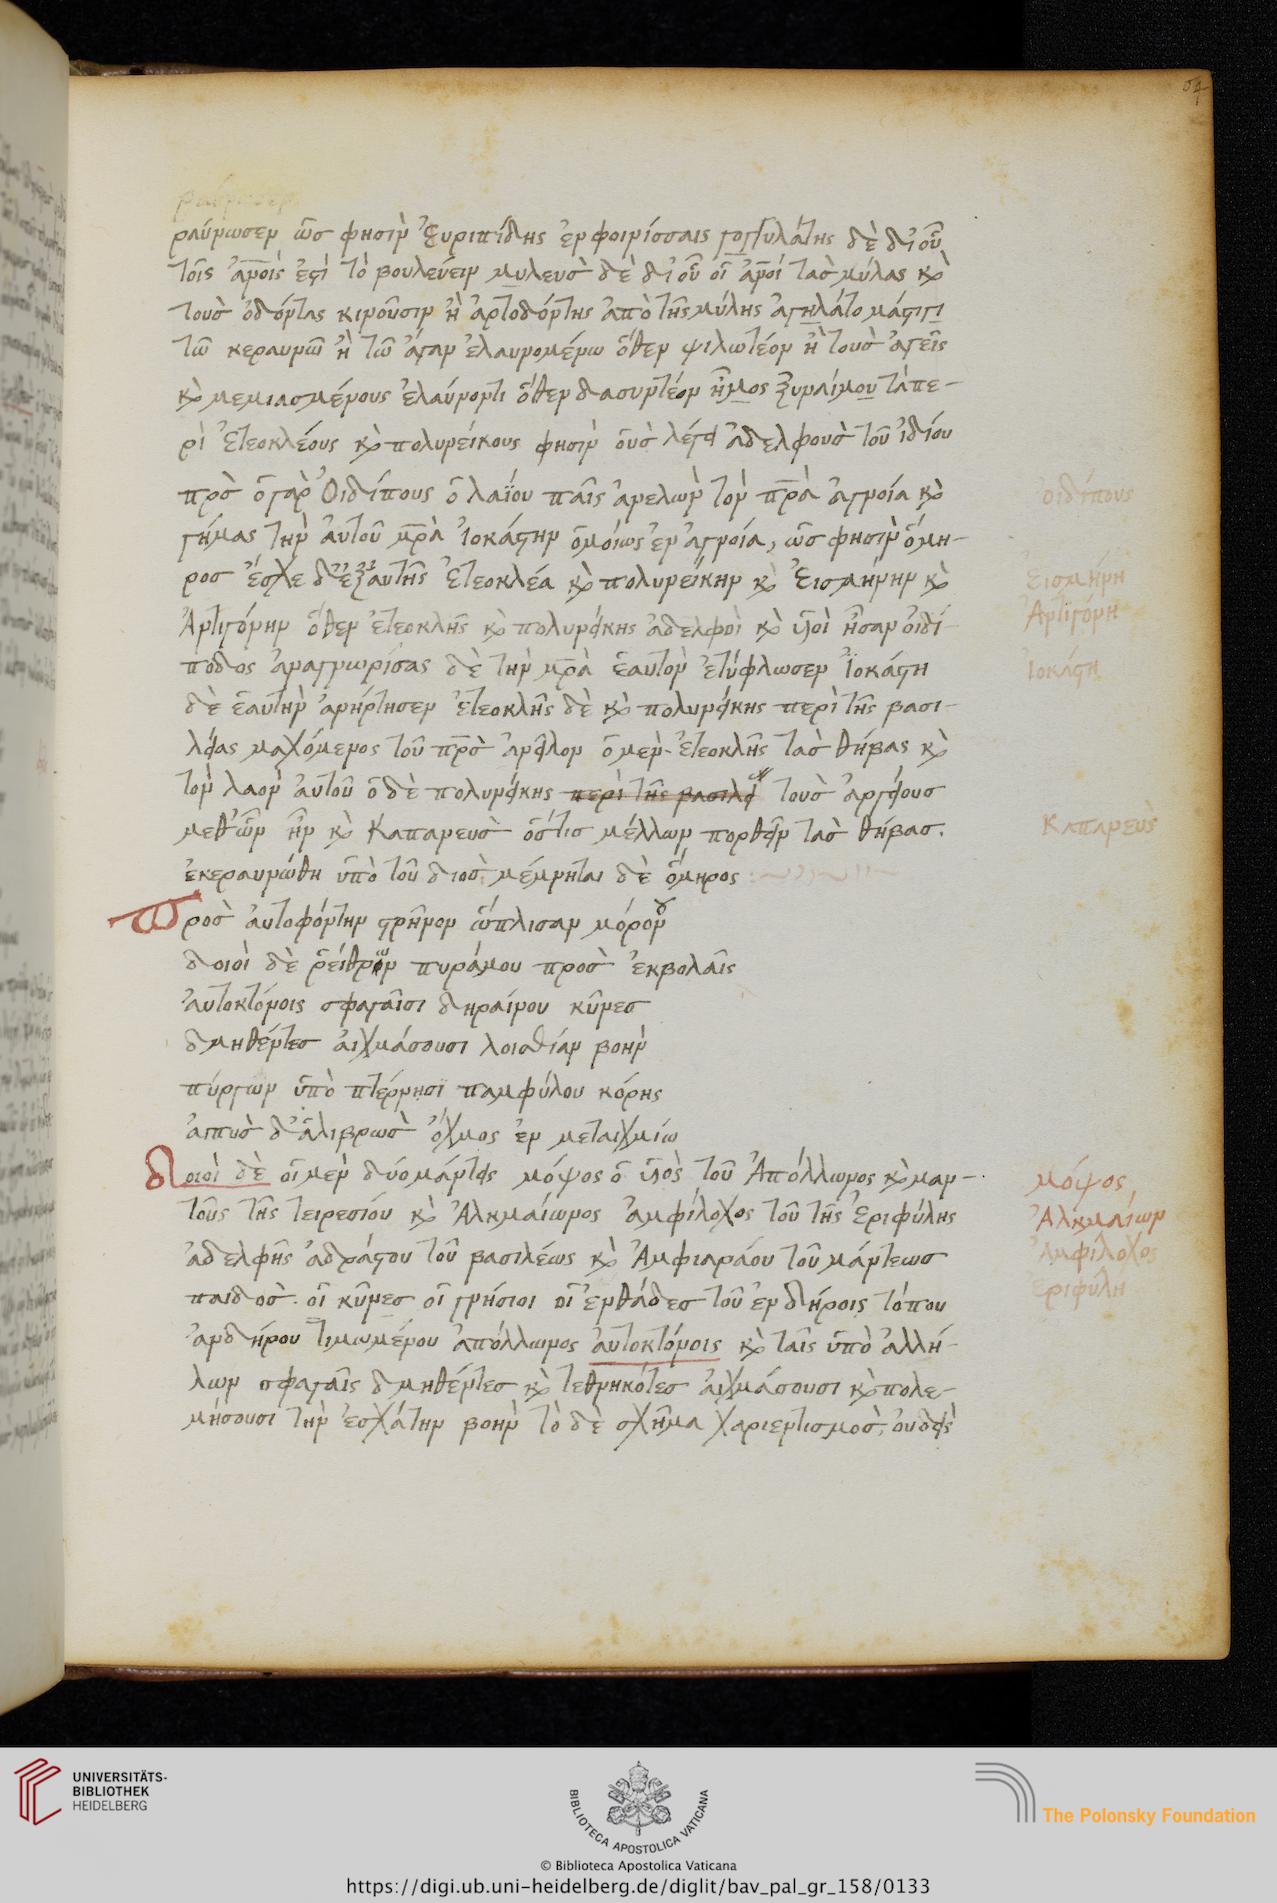 ραύνωσεν ὥσ φησὶν Ἐυριπίδης ἐν φοινίσσαις γογγυλάτης δὲ δι οὗ
τοῖς ἀνοῖς ἐστὶ τὸ βουλεύειν μυλευσ δὲ δι οὗ οἱ ἀνοί τασ μύλας κὸ
τοὺσ ὀδόντας κινοῦσιν ἢ ἀρτοδότης ἀπὸ τῆς μύλης ἀγηλάτο μάστιγι
τῶ κεραυνῶ ἢ τῶ ἄγαν ἐλαυνομένω ὅθεν ψιλωτέον ἢ τοὺσ ἀγεῖς
κὸ μεμιασμένους ἐλαύνοντι ὅθεν δασυντέον ἦμος ξυναίμου τὰ πε-
ρὶ Ἐτεοκλέους κὸ πολυνείκους φησὶν οὓσ λέγει ἀδελφοὺσ τοῦ ἰδίου
πρσ ὁ γὰρ Ὀιδίπους ὁ λαΐου παῖς ἀνελὼν τὸν πρα ἀγνοία κὸ
γήμας τὴν ἀυτοῦ μρα Ἰοκάστην ὁμοίως ἐν ἀγνοία, ὥσ φησὶν ὅμη-
ροσ ἔσχε δ' ἐξ αυτῆς Ἐτεοκλέα κὸ πολυνείκην κὸ Ἐισμήνην κὸ
Ἀντιγόνην ὅθεν ἐτεοκλῆς κὸ πολυνείκης ἀδελφοὶ κὸ ὑιοὶ ἦσαν οἰδί-
ποδος ἀναγνωρίσας δὲ τὴν μρα ἑαυτὸν ἐτύφλωσεν Ἰοκάστη
δὲ ἑαυτὴν ἀνήρτησεν Ἐτεοκλῆς δὲ κὸ πολυνείκης περὶ τῆς βασι-
λείας μαχόμενος τοῦ πρσ ἀνεῖλον ὁ μεν Ἐτεοκλῆς τασ θήβας κὸ
τὸν λαὸν ἀυτοῦ ὁ δὲ πολυνείκης περὶ τῆς βασιλεί τοὺσ ἀργείους
μεθ' ὧν ἦν κὸ Καπανευσ ὅστις μέλλων πορθεῖν τασ θήβασ.
ἐκεραυνώθη ὑπὸ τοῦ διοσ μέμνηται δὲ ὅμηρος
Προσ ἀυτοφόντην στρῆνον ὥπλισαν μόνον
δοιοὶ δὲ ῥείθρων πυράμου προσ ἐκβολαῖς
ἀυτοκτόνοις σφαγαῖσι δηραίνου κῦνεσ
δμηθέντεσ ἀιχμάσουσι λοισθίαν βοὴν
πύργων ὑπὸ πτέρνησι παμφύλου κόρης
ἀιπυσ δ' ἁλιβρωσ ὄχμος ἐν μεταιχμίω
δοιοὶ δὲ οἱ μεν δύο μάντεις μόψος ὁ ὑιὸσ τοῦ Ἀπόλλωνος κὸ μαν-
τοῦς τῆς τειρεσίου κὸ Ἀλκμαίωνος ἀμφίλοχος τοῦ τῆς Ἐριφύλης
ἀδελφῆς ἀδράστου τοῦ βασιλέως κὸ Ἀμφιαράου τοῦ μάντεωσ
παιδοσ οἱ κῦνεσ οἱ γνήσιοι οἱ ἐνθάδεσ τοῦ ἐν δήροις τόπου
ἀνδήρου τιμωμένου ἀπόλλωνος ἀυτοκτόνοις κὸ ταῖς ὑπὸ ἀλλή-
λων σφαγαῖς δμηθέντεσ κὸ τεθνηκότεσ ἀιχμάσουσι κὸ πολε-
μήσουσι τὴν ἐσχάτην βοὴν τὸ δὲ σχῆμα χαριεντισμοσ, ὀυδεὶσ
ὀιδίπους
Ἐισμήνη
Ἀντιγόνη
Ἰοκάστη
Καπανεὺσ
μόψος
Ἀλκμαίων
Ἀμφίλοχος
ἐριφύλη
UNIVERSITÄTS-
BIBLIOTHEK
HEIDELBERG
BIBLIOTECA APOSTOLICA VATICANA
© Biblioteca Apostolica Vaticana
The Polonsky Foundation
https://digi.ub.uni-heidelberg.de/diglit/bav_pal_gr_158/0133